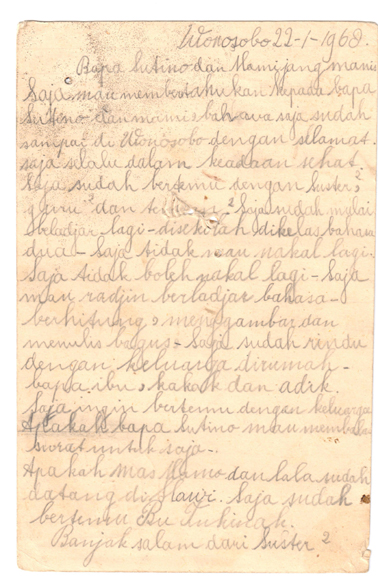 Wonosobo 22-1-1968.
Bapa Sutino dan Mami jang manis
Saja mau memberitahukan kepada bapa
Sutino dan mami bahwa saja sudah
sampai di Wonosobo dengan selamat.
saja selalu dalam keadaan sehat.
Saja sudah bertemu dengan Suster 2
guru 2 dan 2 Saja sudah mulai
beladjar lagi - disekolah dikelas bahasa
dua - Saja tidak mau nakal lagi.
Saja tidak boleh nakal lagi - Saja
mau radjin berladjar bahasa -
berhitung, menggambar dan
menulis bagus - Saja sudah rindu
dengan keluarga dirumah -
bapa ibu, kakak dan adik.
Saja ingin bertemu dengan keluarga
Apakah bapa Sutino mau membalas
surat untuk saja -
Apakah mas Momo dan lala sudah
datang di Slawi. Saja sudah
bertemu Bu Tukinah.
Banjak salam dari Suster 2